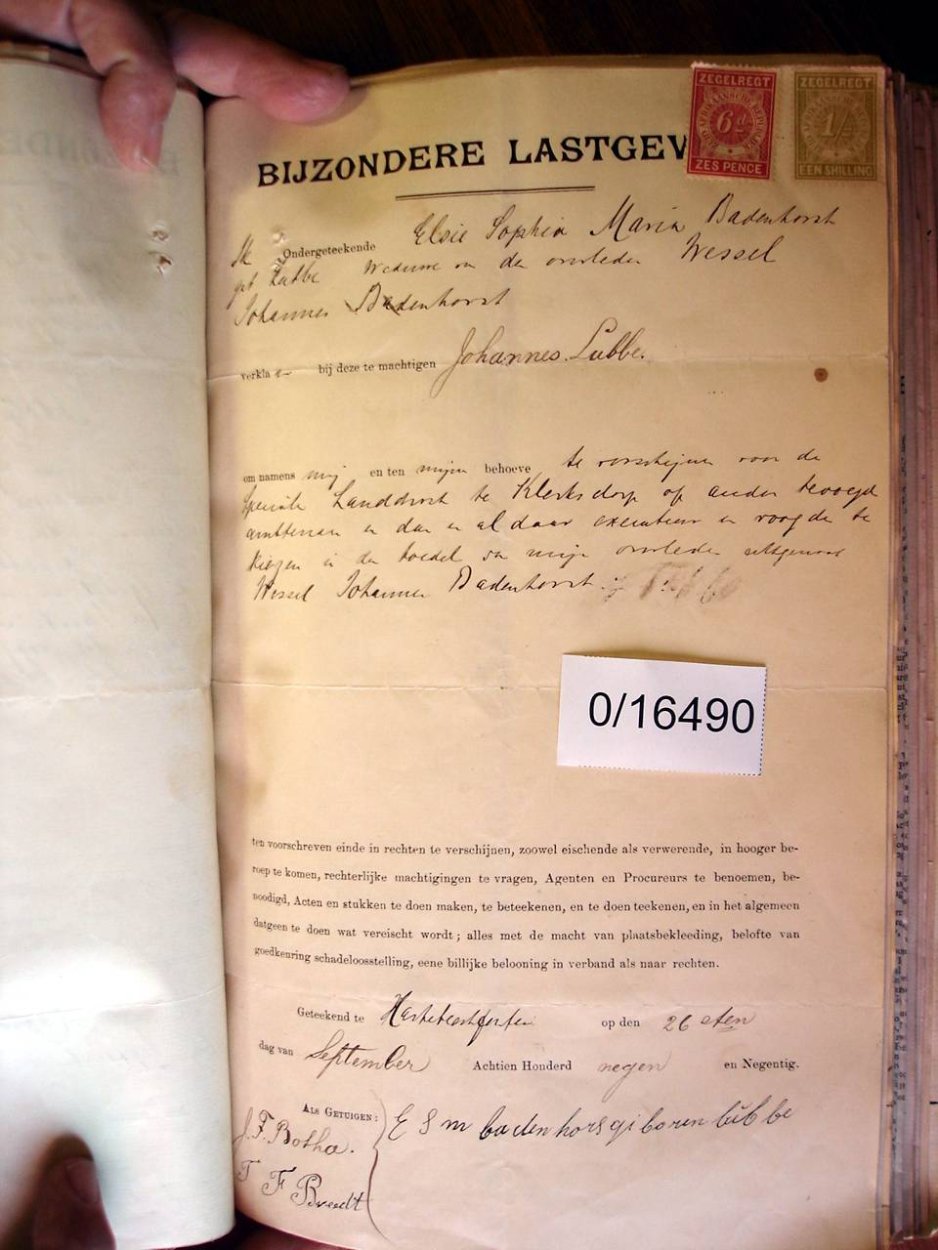 ZEGELREGT
6d
ZES PENCE
ZEGELREGT
1/
EEN SHILLING
BIJZONDERE LASTGEV
Ik Ondergeteekende Elsie Sophia Maria Badenhorst
geb Lubbe Weduwe van de overleden Wessel
Johannes Badenhorst
verkla bij deze te machtigen Johannes Lubbe.
om namens mij en ten mijne behoeve te verschijnen voor de
Speciale Landdrost te Klerksdorp of ander bevoegd
ambtenaar en dan en aldaar executeur en voogden te
kiezen in den boedel van mijn overleden echtgenoot
Wessel Johannes Badenhorst
0/16490
ten voorschreven einde in rechten te verschijnen, zoowel eischende als verwerende, in hooger be-
roep te komen, rechterlijke machtigingen te vragen, Agenten en Procureurs te benoemen, be-
noodigd, Acten en stukken te doen maken, te beteekenen, en te doen teekenen, en in het algemeen
datgeen te doen wat vereischt wordt; alles met de macht van plaatsbekleeding, belofte van
goedkeuring schadeloosstelling, eene billijke belooning in verband als naar rechten.
Geteekend te Hartebeestfontein op den 26 sten
dag van September Achtien Honderd negen en Negentig.
ALS GETUIGEN:
E S M badenhors giboren lubbe
J. F. Botha.
T F Breedt